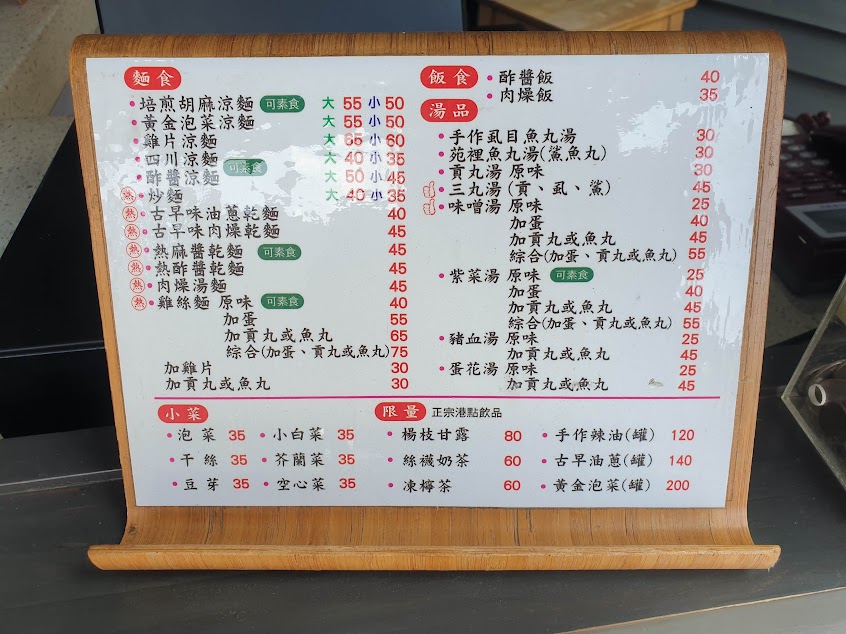 麵食
培煎胡麻涼麵 可素食 大 55 小 50
黃金泡菜涼麵 大 55 小 50
雞片涼麵 大 65 小 60
四川涼麵 大 40 小 35
酢醬涼麵 可素食 大 50 小 45
熱 炒麵 大 40 小 35
熱 古早味油蔥乾麵 40
熱 古早味肉燥乾麵 45
熱 熱麻醬乾麵 可素食 45
熱 熱酢醬乾麵 45
熱 肉燥湯麵 45
熱 雞絲麵 原味 可素食 40
加蛋 55
加貢丸或魚丸 65
綜合(加蛋、貢丸或魚丸) 75
加雞片 30
加貢丸或魚丸 30
飯食
酢醬飯 40
肉燥飯 35
湯品
手作虱目魚丸湯 30
苑裡魚丸湯(鯊魚丸) 30
貢丸湯 原味 30
三丸湯 (貢、虱、鯊) 45
味噌湯 原味 25
加蛋 40
加貢丸或魚丸 45
綜合(加蛋、貢丸或魚丸) 55
紫菜湯 原味 可素食 25
加蛋 40
加貢丸或魚丸 45
綜合(加蛋、貢丸或魚丸) 55
豬血湯 原味 25
加貢丸或魚丸 45
蛋花湯 原味 25
加貢丸或魚丸 45
小菜
泡菜 35 小白菜 35
干絲 35 芥蘭菜 35
豆芽 35 空心菜 35
限量 正宗港點飲品
楊枝甘露 80 手作辣油(罐) 120
絲襪奶茶 60 古早油蔥(罐) 140
凍檸茶 60 黃金泡菜(罐) 200